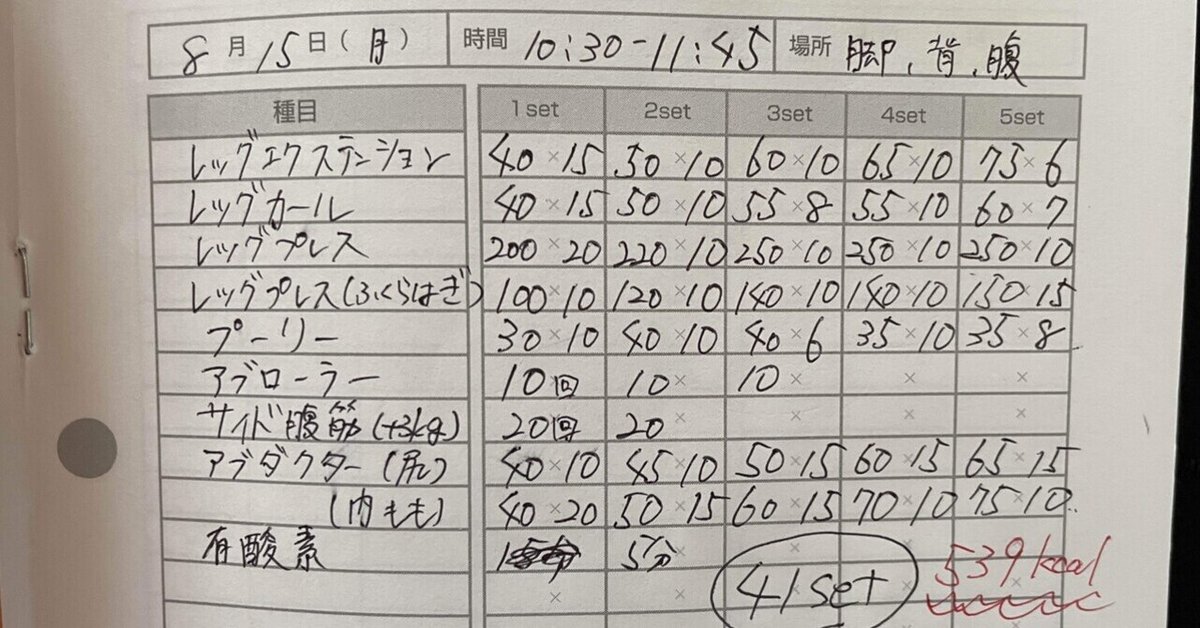 8月15日(月) 時間 10:30-11:45 場所 脚、背、腹
種目 1set 2set 3set 4set 5set
レッグエクステンション 40×15 50×10 60×10 65×10 75×6
レッグカール 40×15 50×10 55×8 55×10 60×7
レッグプレス 200×20 220×10 250×10 250×10 250×10
レッグプレス(ふくらはぎ) 100×10 120×10 140×10 140×10 150×15
プーリー 30×10 40×10 40×6 35×10 35×8
アブローラー 10回 10× 10× × ×
サイド腹筋(+3kg) 20回 20× × × ×
アブダクター(尻) 40×10 45×10 50×15 60×15 65×15
(内もも) 40×20 50×15 60×15 70×10 75×10
有酸素 5分× ×
× × 41set × 539kcal ×